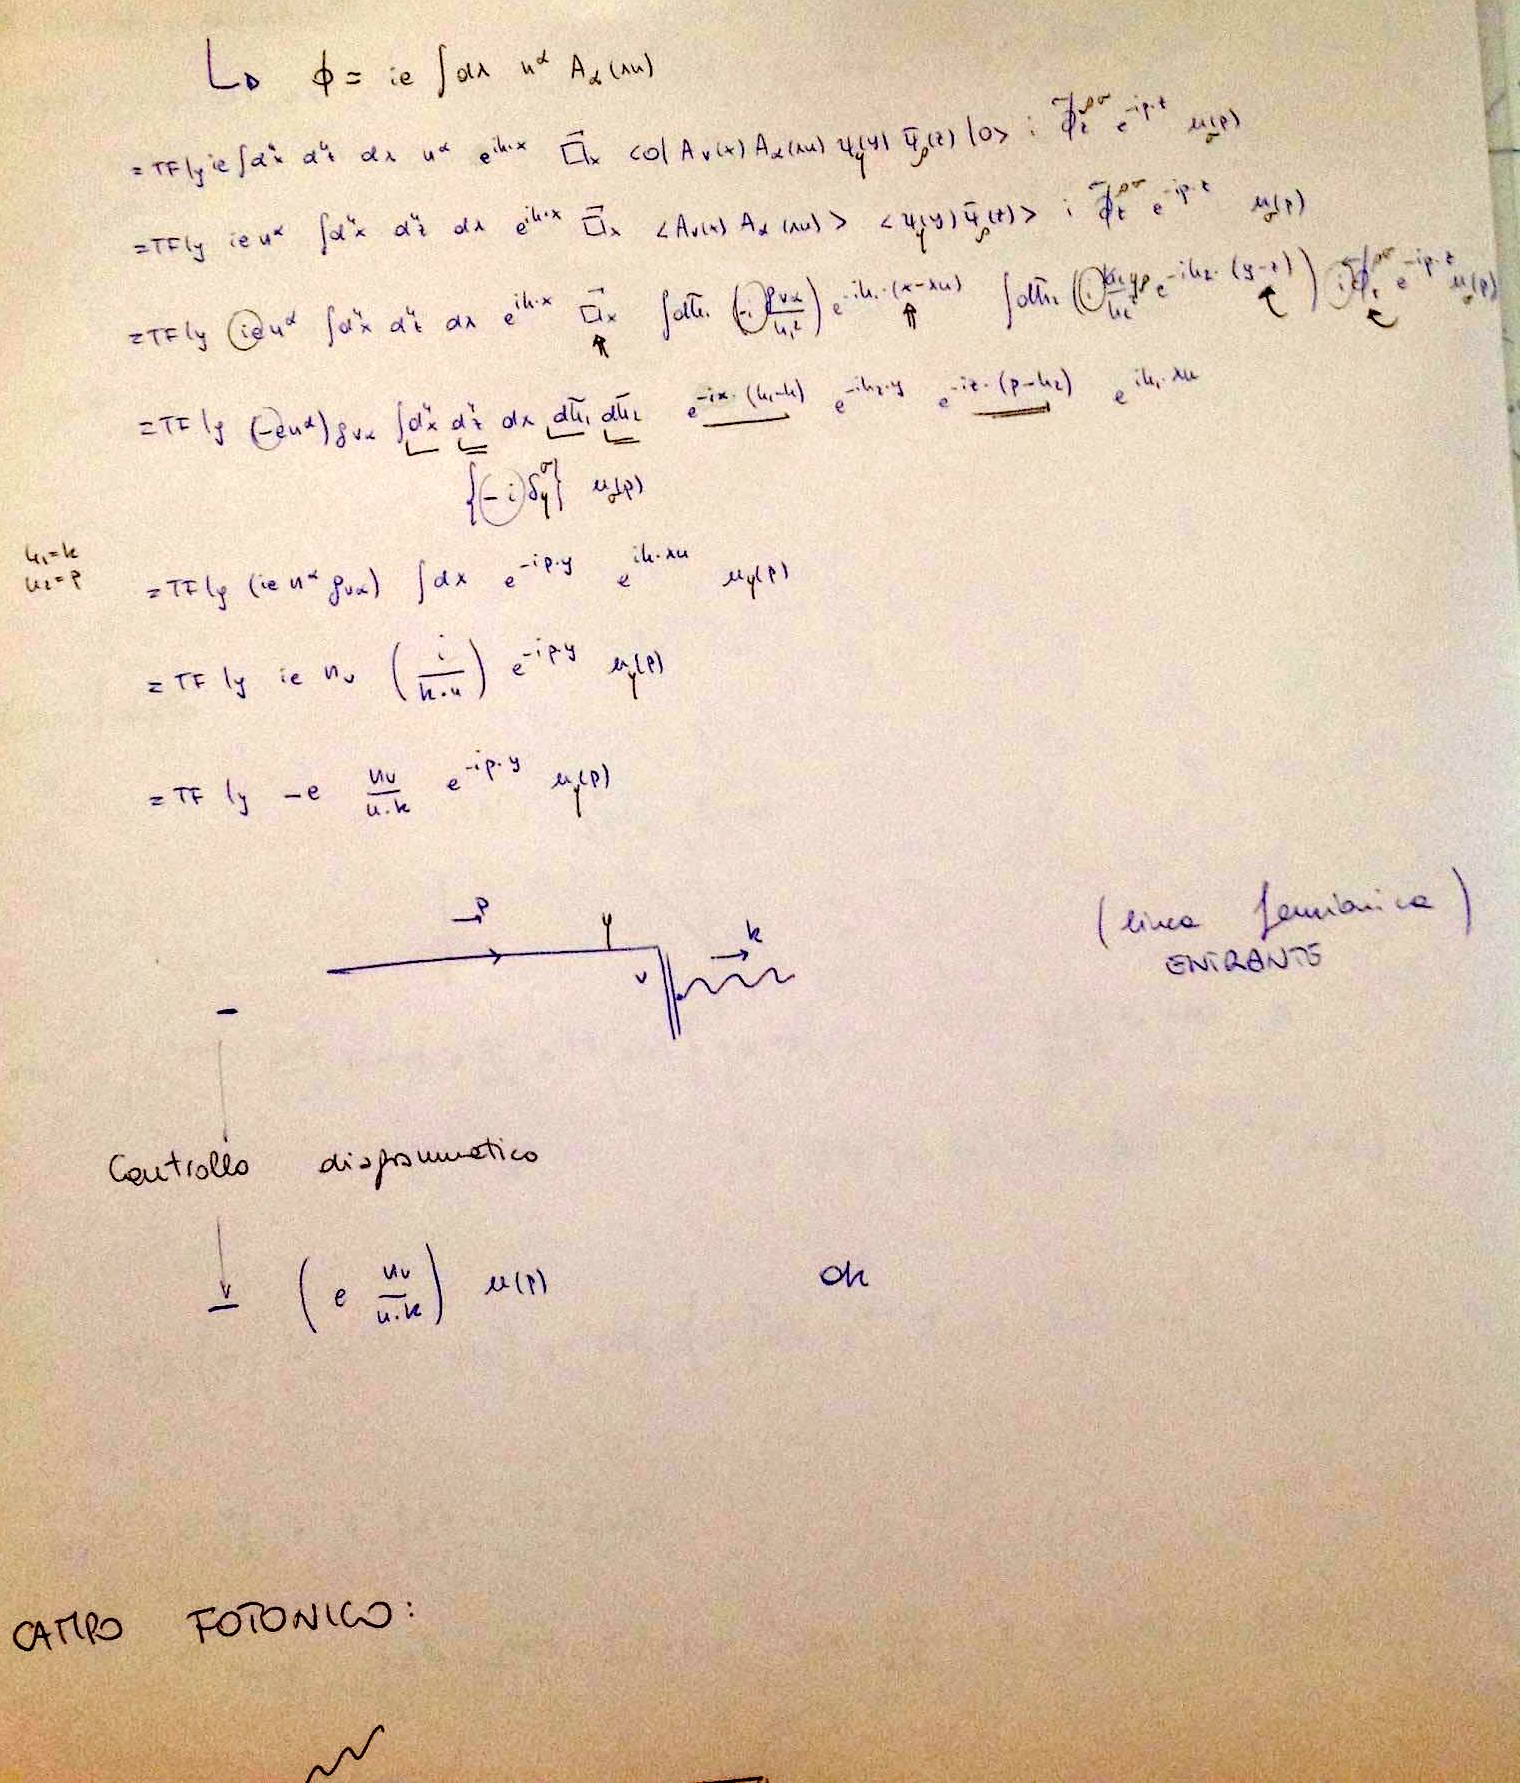 ↳ ϕ = ie ∫dλ n^α A_α(λn)
= TF|y ie ∫d⁴x d⁴z dλ n^α e^{ik·x} □⃗_x <0| A_ν(x) A_α(λn) ψ_γ(y) ψ̄_ρ(z) |0> i e^{-ip·z} u_σ(p)
= TF|y ie n^α ∫d⁴x d⁴z dλ e^{ik·x} □⃗_x <A_ν(x) A_α(λn)> <ψ_γ(y) ψ̄_ρ(z)> i e^{-ip·z} u_σ(p)
= TF|y (ie) n^α ∫d⁴x d⁴z dλ e^{ik·x} □⃗_x ∫dk̄₁ (-i g_{να}/k₁²) e^{-ik₁·(x-λn)} ∫dk̄₂ e^{-ik₂·(y-z)} i e^{-ip·z} u_σ(p)
= TF|y (-e n^α) g_{να} ∫d⁴x d⁴z dλ dk̄₁ dk̄₂ e^{-ix·(k₁-k)} e^{-ik₂·y} e^{-iz·(p-k₂)} e^{ik₁·λn}
{(-i) δ_γ^σ} u_σ(p)
k₁=k
k₂=p
= TF|y (ie n^α g_{να}) ∫dλ e^{-ip·y} e^{ik·λn} u_γ(p)
= TF|y ie n_ν (i/k·n) e^{-ip·y} u_γ(p)
= TF|y -e n_ν/n·k e^{-ip·y} u_γ(p)
p γ ν k
(linea fermionica)
ENTRANTE
Controllo diagrammatico
(e n_ν/n·k) u(p) ok
CAMPO FOTONICO: